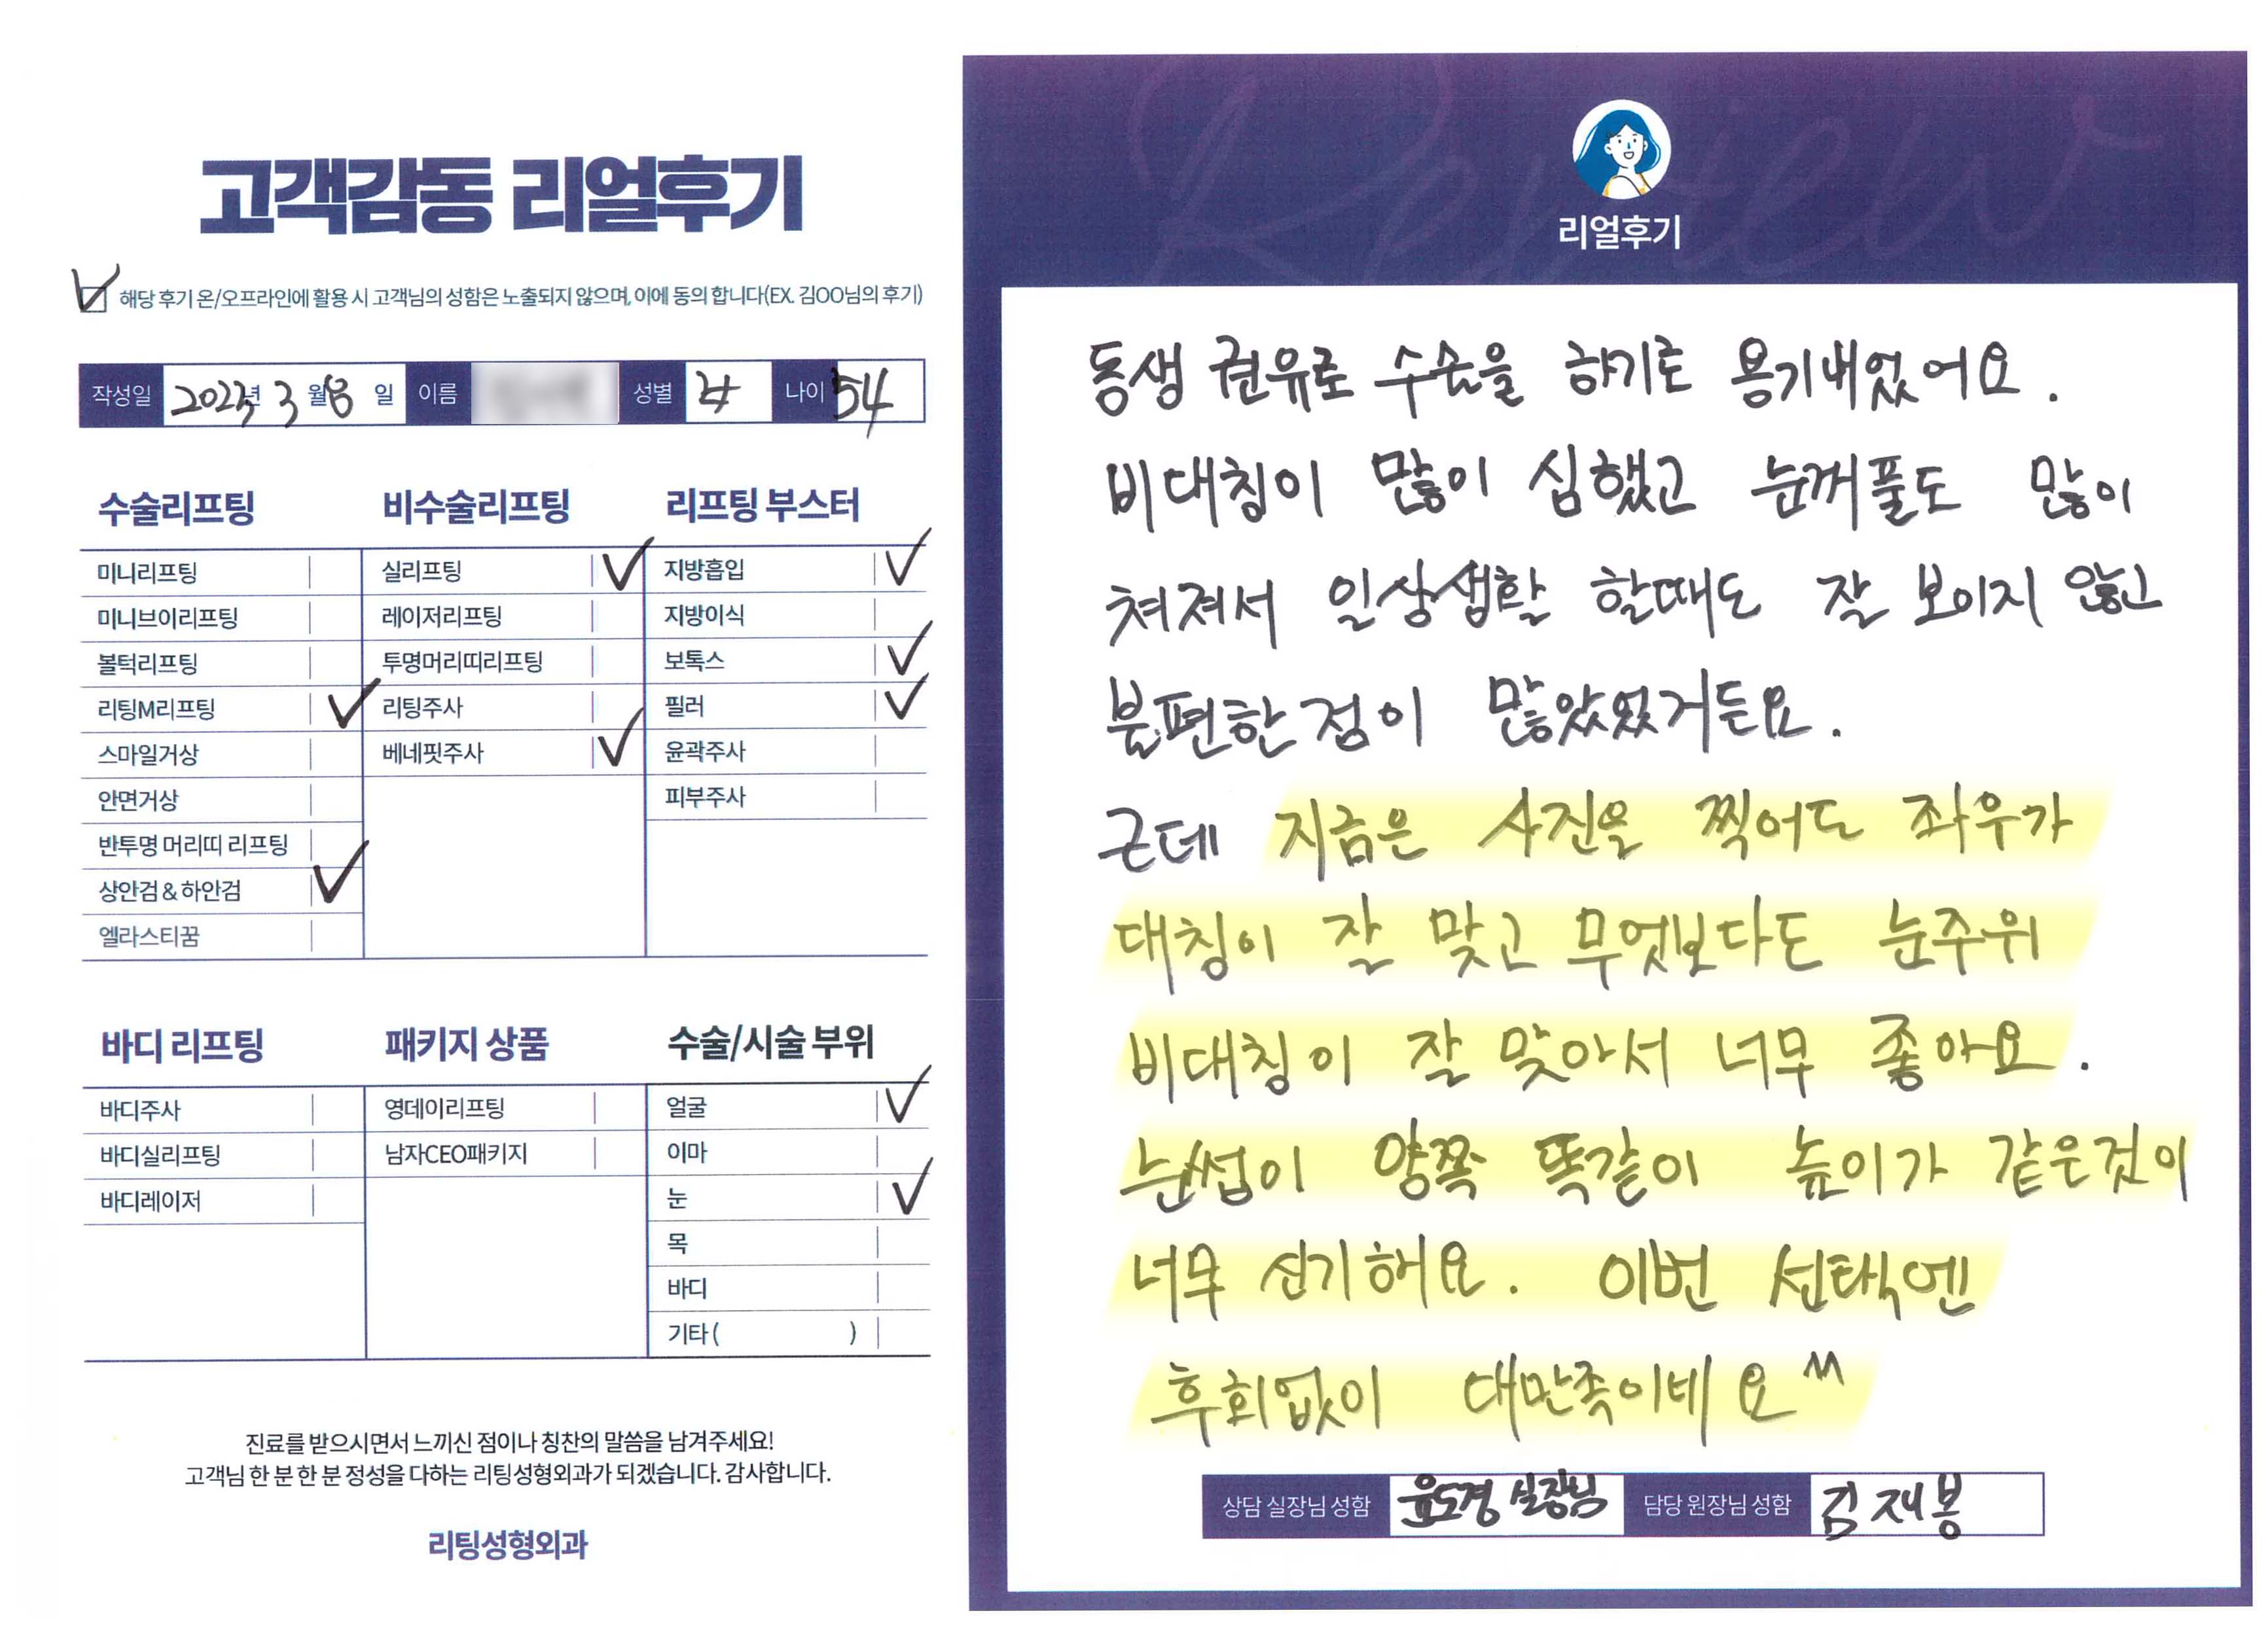 고객감동 리얼후기
해당 후기 온/오프라인에 활용 시 고객님의 성함은 노출되지 않으며, 이에 동의 합니다(EX. 김OO님의 후기)
작성일 년 3 월 일 이름 성별 나이 54
수술리프팅
미니리프팅
미니브이리프팅
볼턱리프팅
리팅M리프팅
스마일거상
안면거상
반투명 머리띠 리프팅
상안검 & 하안검
엘라스티꿈
비수술리프팅
실리프팅
레이저리프팅
투명머리띠리프팅
리팅주사
베네핏주사
리프팅 부스터
지방흡입
지방이식
보톡스
필러
윤곽주사
피부주사
바디 리프팅
바디주사
바디실리프팅
바디레이저
패키지 상품
영데이리프팅
남자CEO패키지
수술/시술 부위
얼굴
이마
눈
목
바디
기타 ( )
진료를 받으시면서 느끼신 점이나 칭찬의 말씀을 남겨주세요!
고객님 한 분 한 분 정성을 다하는 리팅성형외과가 되겠습니다. 감사합니다.
리팅성형외과
Review
리얼후기
동생 권유로 수술을 하기로 용기내었어요.
비대칭이 많이 심했고 눈꺼풀도 많이
쳐져서 일상생활 할때도 잘 보이지 않고
불편한점이 많았었거든요.
근데 지금은 사진을 찍어도 좌우가
대칭이 잘 맞고 무엇보다도 눈주위
비대칭이 잘 맞아서 너무 좋아요.
눈썹이 양쪽 똑같이 높이가 같은것이
너무 신기해요. 이번 선택엔
후회없이 대만족이네요 ^^
상담 실장님 성함 윤도경 실장님 담당 원장님 성함 김재봉